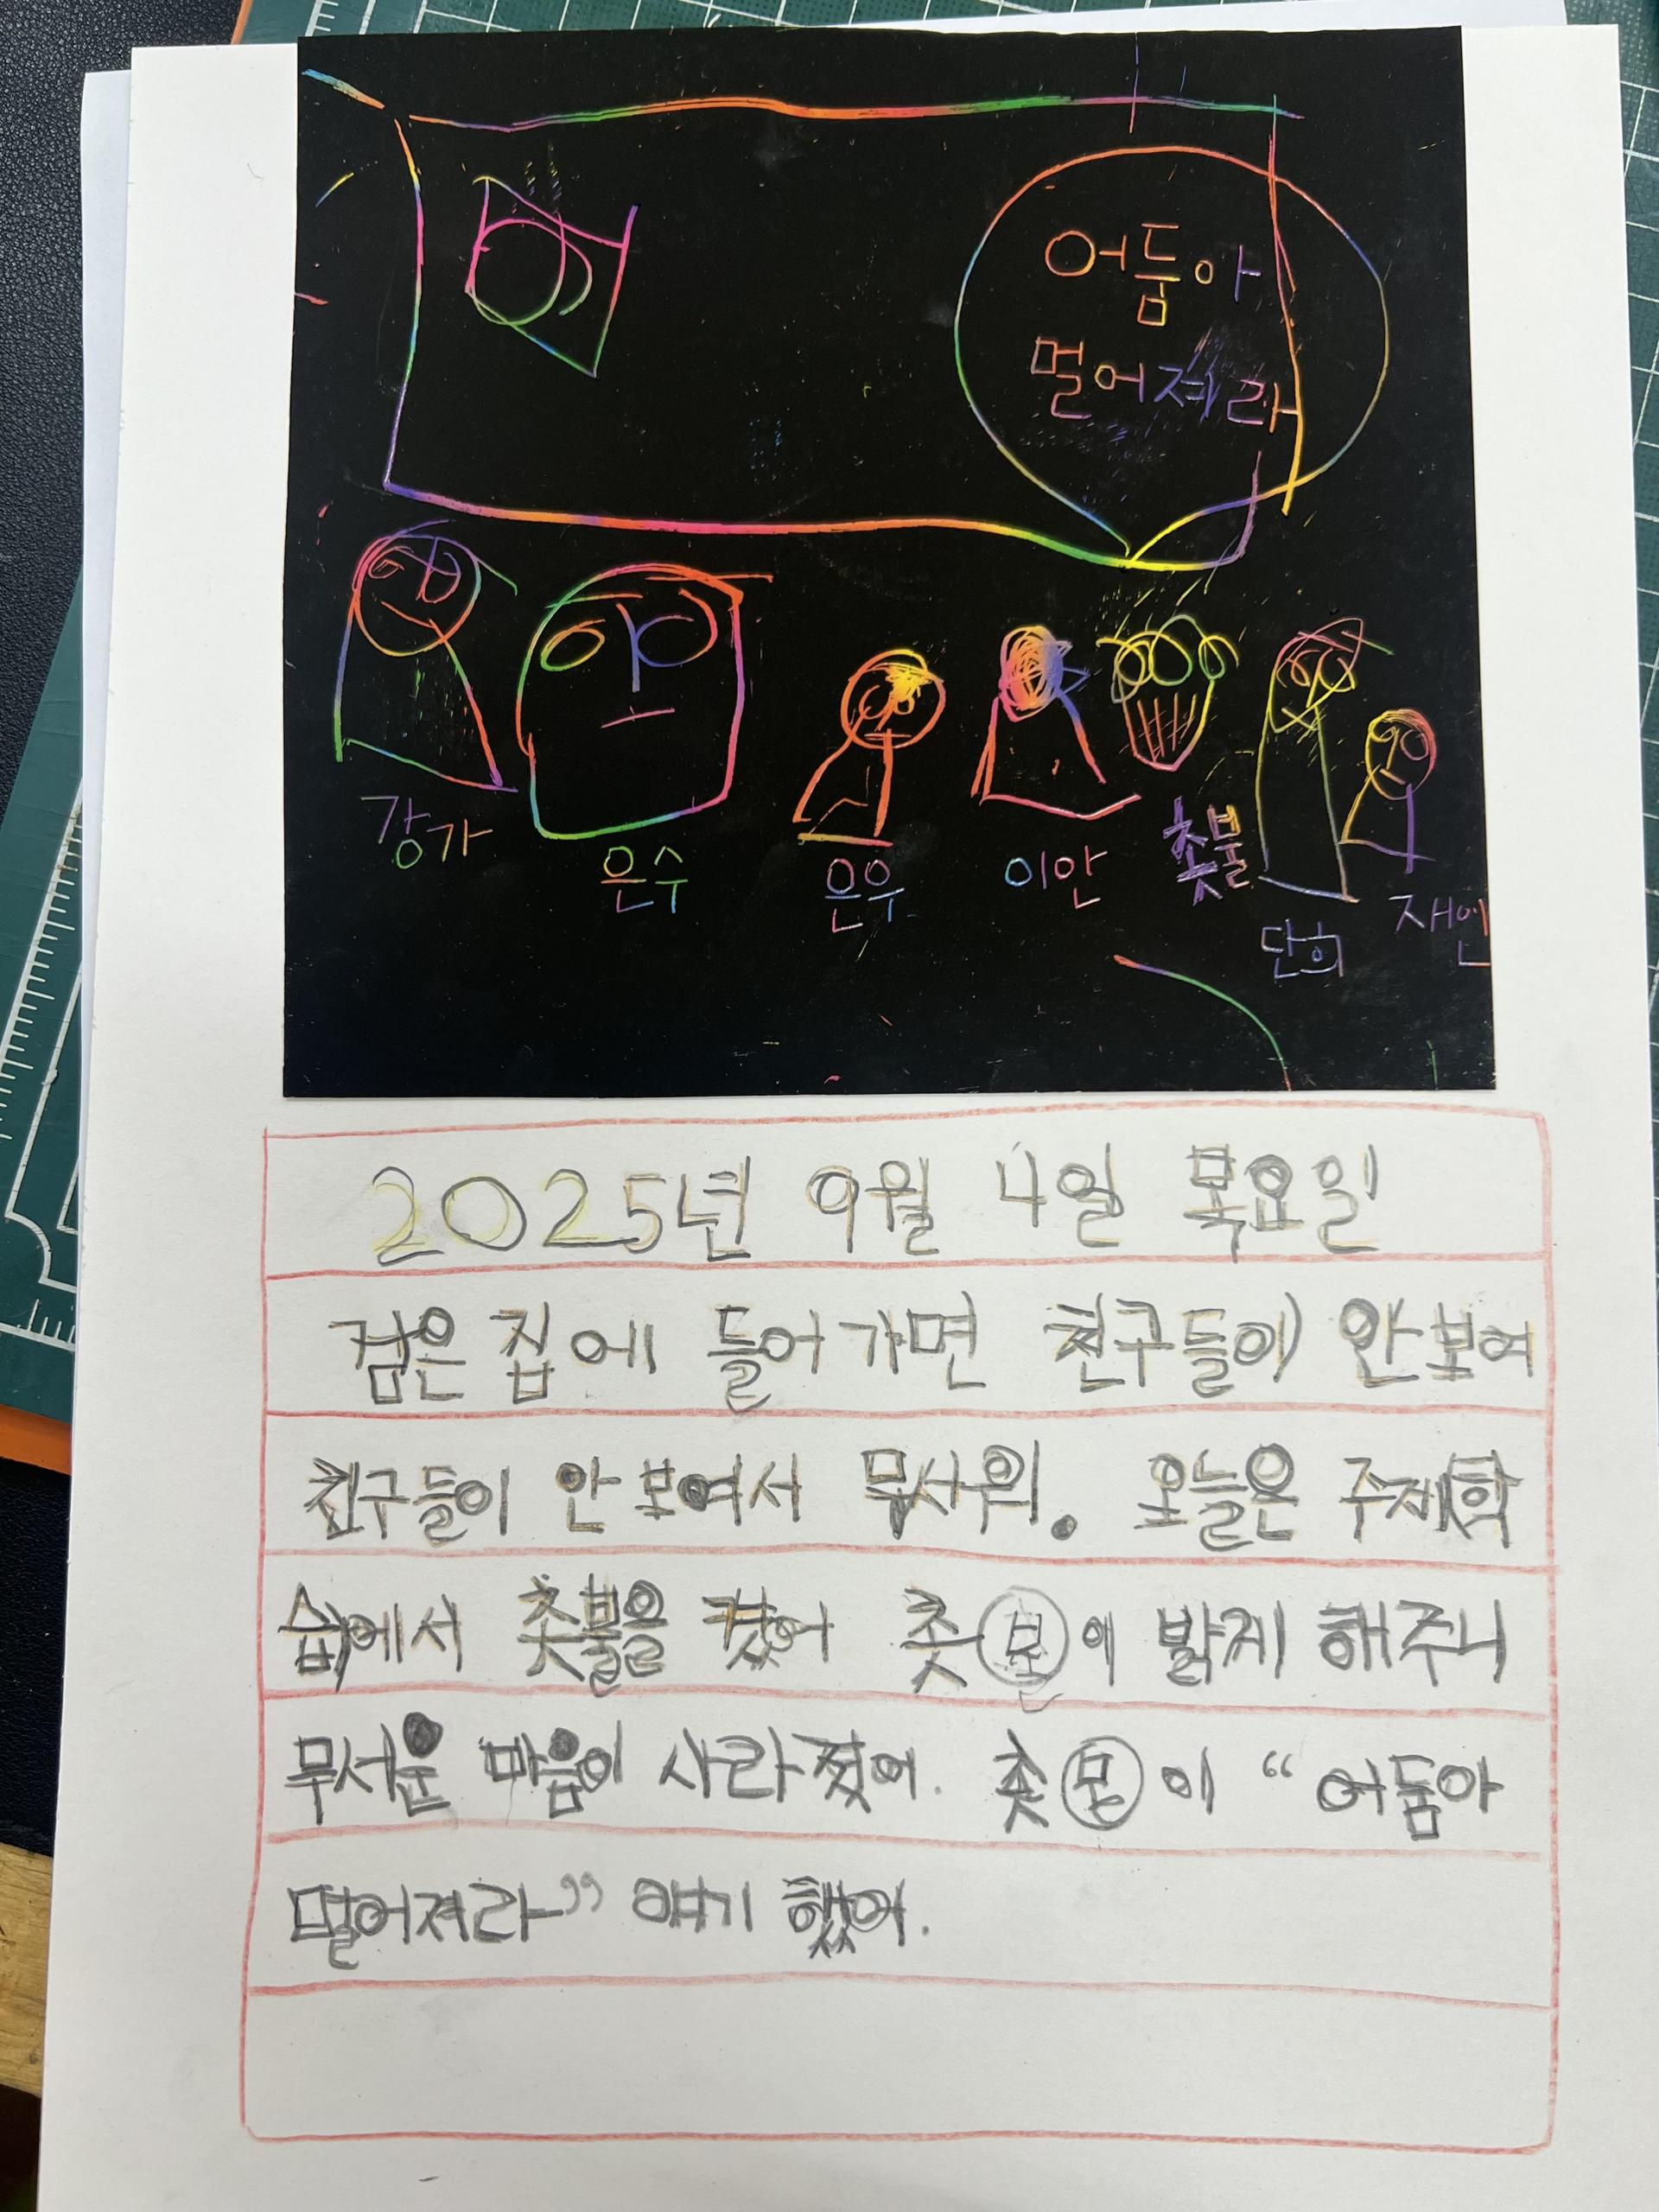 어둠아
멀어져라
강가
은수
은우
이안
촛불
단희
재인
2025년 9월 4일 목요일
검은 집에 들어가면 친구들이 안 보여
친구들이 안 보여서 무서워. 오늘은 주제학
습에서 촛불을 켰어 촛불에 밝게 해주니
무서운 마음이 사라졌어. 촛불이 “어둠아
멀어져라” 얘기 했어.